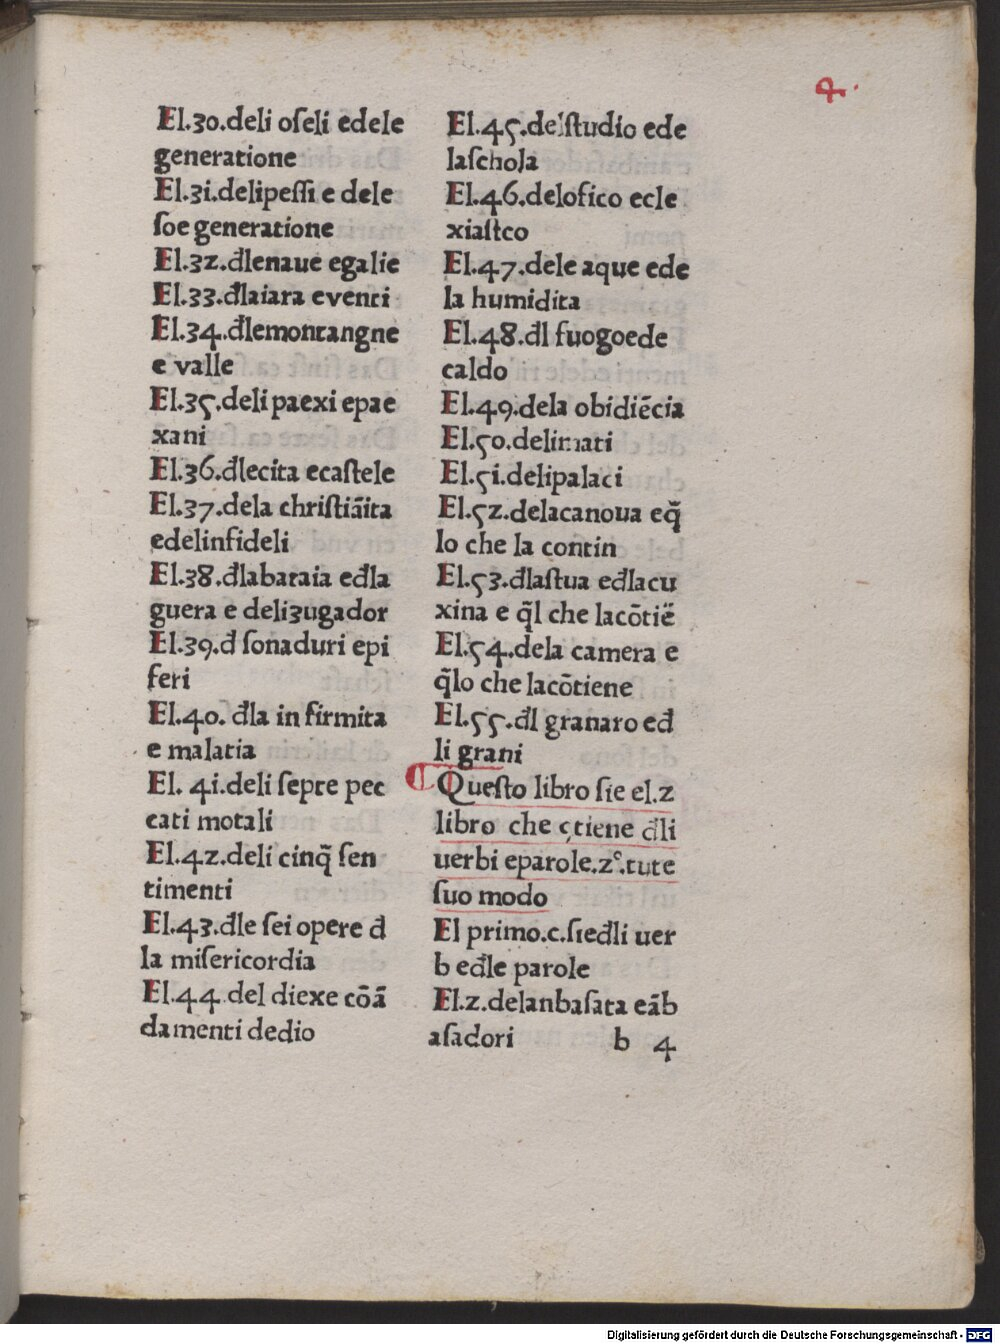 4.
El.30.deli oſeli edele
generatione
El.3i.delipeſſi e dele
ſoe generatione
El.3z.đlenaue egalie
El.33.đlaiara eventi
El.34.đlemontangne
e valle
El.35.deli paexi epae
xani
El.36.đlecita ecaſtele
El.37.dela chriſtiãita
edelinfideli
El.38.đlabataia eđla
guera e deliʒugador
El.39.đ ſonaduri epi
feri
El.40. đla in firmita
e malatia
El. 4i.deli ſepte pec
cati motali
El.4z.deli cinq̃ ſen
timenti
El.43.đle ſei opere đ
la miſericordia
El.44.del diexe cõã
damenti dedio
El.45.delſtudio ede
laſchola
El.46.delofico ecle
xiaſtco
El.47.dele aque ede
la humidita
El.48.đl fuogoede
caldo
El.49.dela obidiẽcia
El.50.delimati
El.5i.delipalaci
El.5z.delacanoua eq̃
lo che la contin
El.53.đlaſtua eđlacu
xina e q̃l che lacõtiẽ
El.54.dela camera e
q̃lo che lacõtiene
El.55.đl granaro eđ
li grani
Queſto libro ſie el.z
libro che ꝯtiene đli
uerbi eparole.zͨ.tute
ſuo modo
El primo.c.ſieđli uer
b eđle parole
El.z.delanbaſata eãb
aſadori b 4
Digitalisierung gefördert durch die Deutsche Forschungsgemeinschaft - DFG